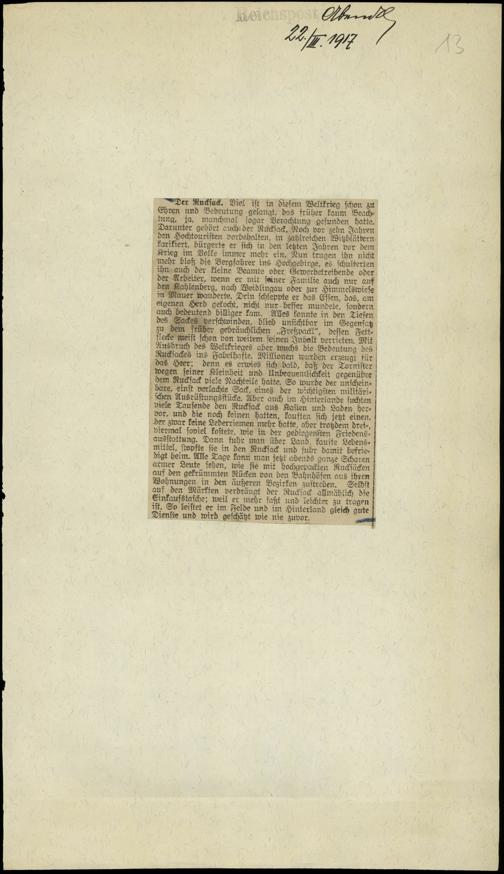 Reichspost
Abendbl
22./III. 1917
13
Der Rucksack. Viel ist in diesem Weltkrieg schon zu
Ehren und Bedeutung gelangt, das früher kaum Beach-
tung, ja, manchmal sogar Verachtung gefunden hatte.
Darunter gehört auch der Rucksack. Noch vor zehn Jahren
den Hochtouristen vorbehalten, in zahlreichen Witzblättern
karikiert, bürgerte er sich in den letzten Jahren vor dem
Krieg im Volke immer mehr ein. Nun trugen ihn nicht
mehr bloß die Bergfahrer ins Hochgebirge, es schulterten
ihn auch der kleine Beamte oder Gewerbetreibende oder
der Arbeiter, wenn er mit seiner Familie auch nur auf
den Kahlenberg, nach Weidlingau oder zur Himmelswiese
in Mauer wanderte. Drin schleppte er das Essen, das, am
eigenen Herd gekocht, nicht nur besser mundete, sondern
auch bedeutend billiger kam. Alles konnte in den Tiefen
des Sackes verschwinden, blieb unsichtbar im Gegensatz
zu dem früher gebräuchlichen „Freßpackl“, dessen Fett-
flecke meist schon von weitem seinen Inhalt verrieten. Mit
Ausbruch des Weltkrieges aber wuchs die Bedeutung des
Rucksackes ins Fabelhafte. Millionen wurden erzeugt für
das Heer; denn es erwies sich bald, daß der Tornister
wegen seiner Kleinheit und Unbequemlichkeit gegenüber
dem Rucksack viele Nachteile hatte. So wurde der unschein-
bare, einst verlachte Sack, eines der wichtigsten militäri-
schen Ausrüstungsstücke. Aber auch im Hinterlande suchten
viele Tausende den Rucksack aus Kasten und Laden her-
vor, und die noch keinen hatten, kauften sich jetzt einen,
der zwar keine Lederriemen mehr hatte, aber trotzdem drei-,
viermal soviel kostete, wie in der gediegensten Friedens-
ausstattung. Dann fuhr man über Land, kaufte Lebens-
mittel, stopfte sie in den Rucksack und fuhr damit befrie-
digt heim. Alle Tage kann man jetzt abends ganze Scharen
armer Leute sehen, wie sie mit hochgepackten Rucksäcken
auf den gekrümmten Rücken von den Bahnhöfen aus ihren
Wohnungen in den äußeren Bezirken zustreben. Selbst
auf den Märkten verdrängt der Rucksack allmählich die
Einkaufstasche; weil er mehr faßt und leichter zu tragen
ist. So leistet er im Felde und im Hinterland gleich gute
Dienste und wird geschätzt wie nie zuvor.